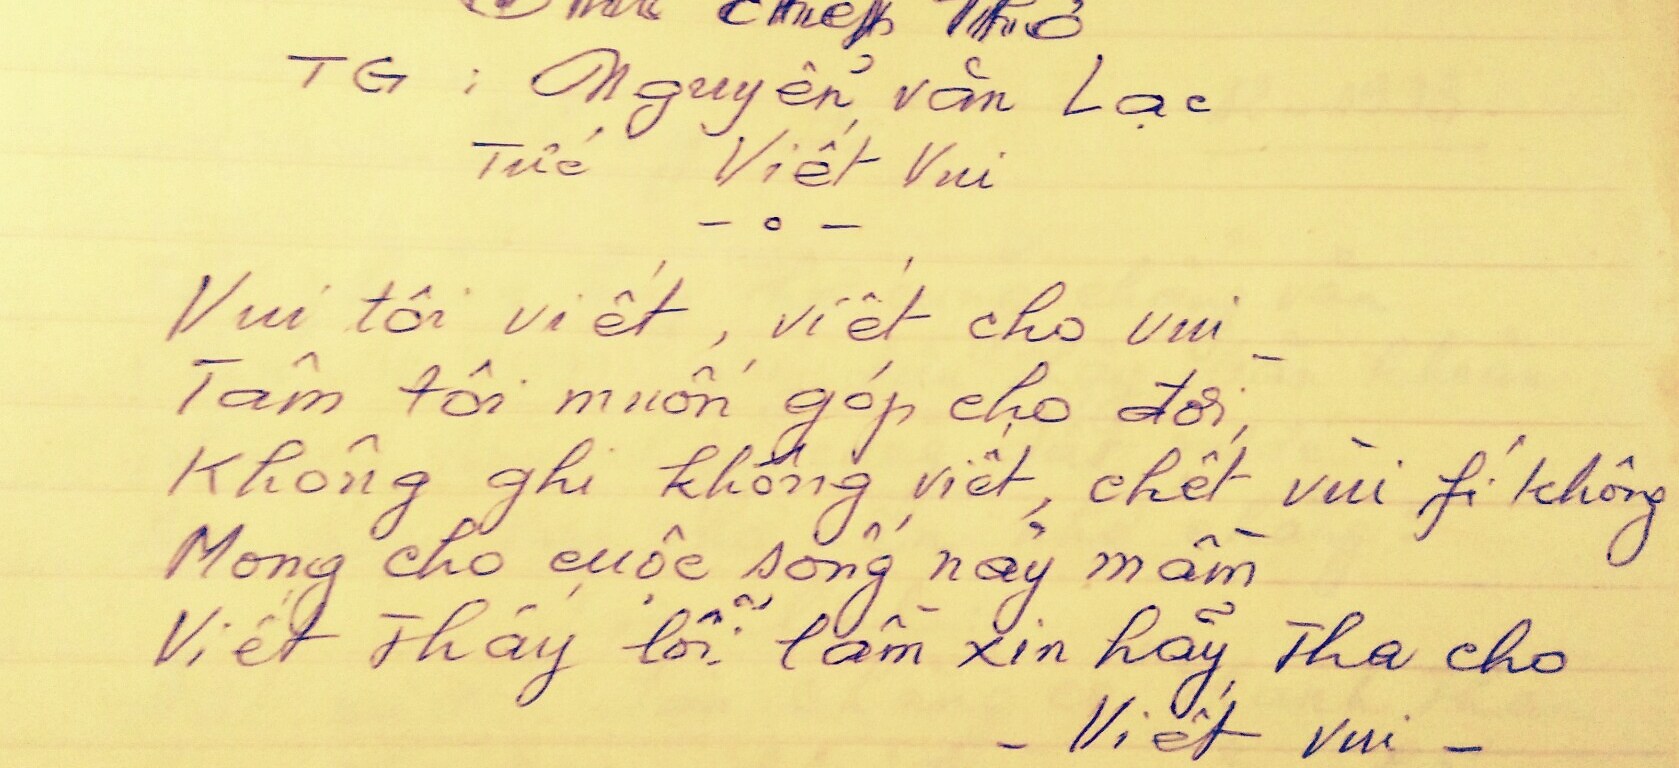 chép Thơ
TG : Nguyễn văn Lạc
Tức Viết Vui
- o -
Vui tôi viết, viết cho vui
Tâm tôi muốn góp cho đời,
Không ghi không viết, chết vùi fí không
Mong cho cuộc sống nảy mầm
Viết Thấy lỗi lầm xin hãy Tha cho
- Viết vui -